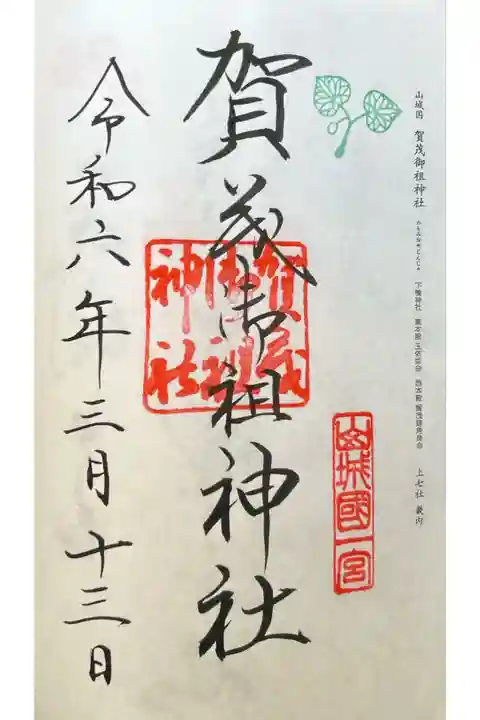 山城国 賀茂御祖神社 かもみおやじんじゃ 下鴨神社 東本殿 玉依姫命 西本殿 賀茂建角身命 上七社 蔵内
山城國一宮
賀茂御祖神社
賀茂御祖神社
令和六年三月十三日